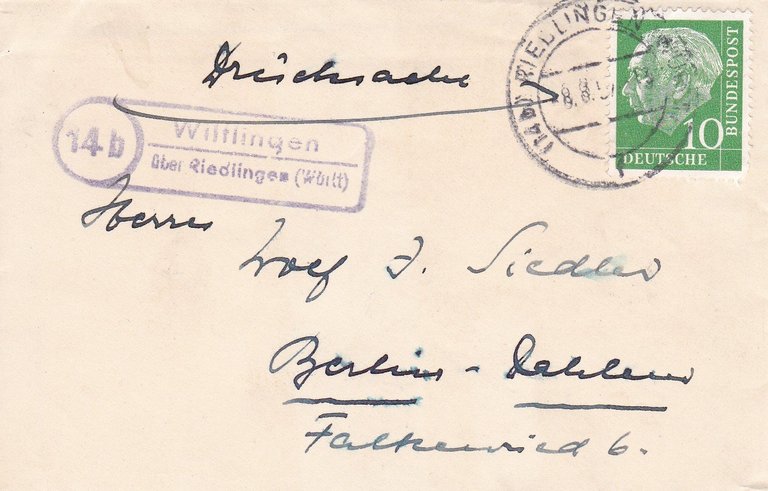 Drucksache
(14b) RIEDLINGEN
8.8.57
10
DEUTSCHE
BUNDESPOST
14b
Wilflingen
über Riedlingen (Württ)
Herrn
Wolf J. Siedler
Berlin-Dahlem
Falkenried 6.